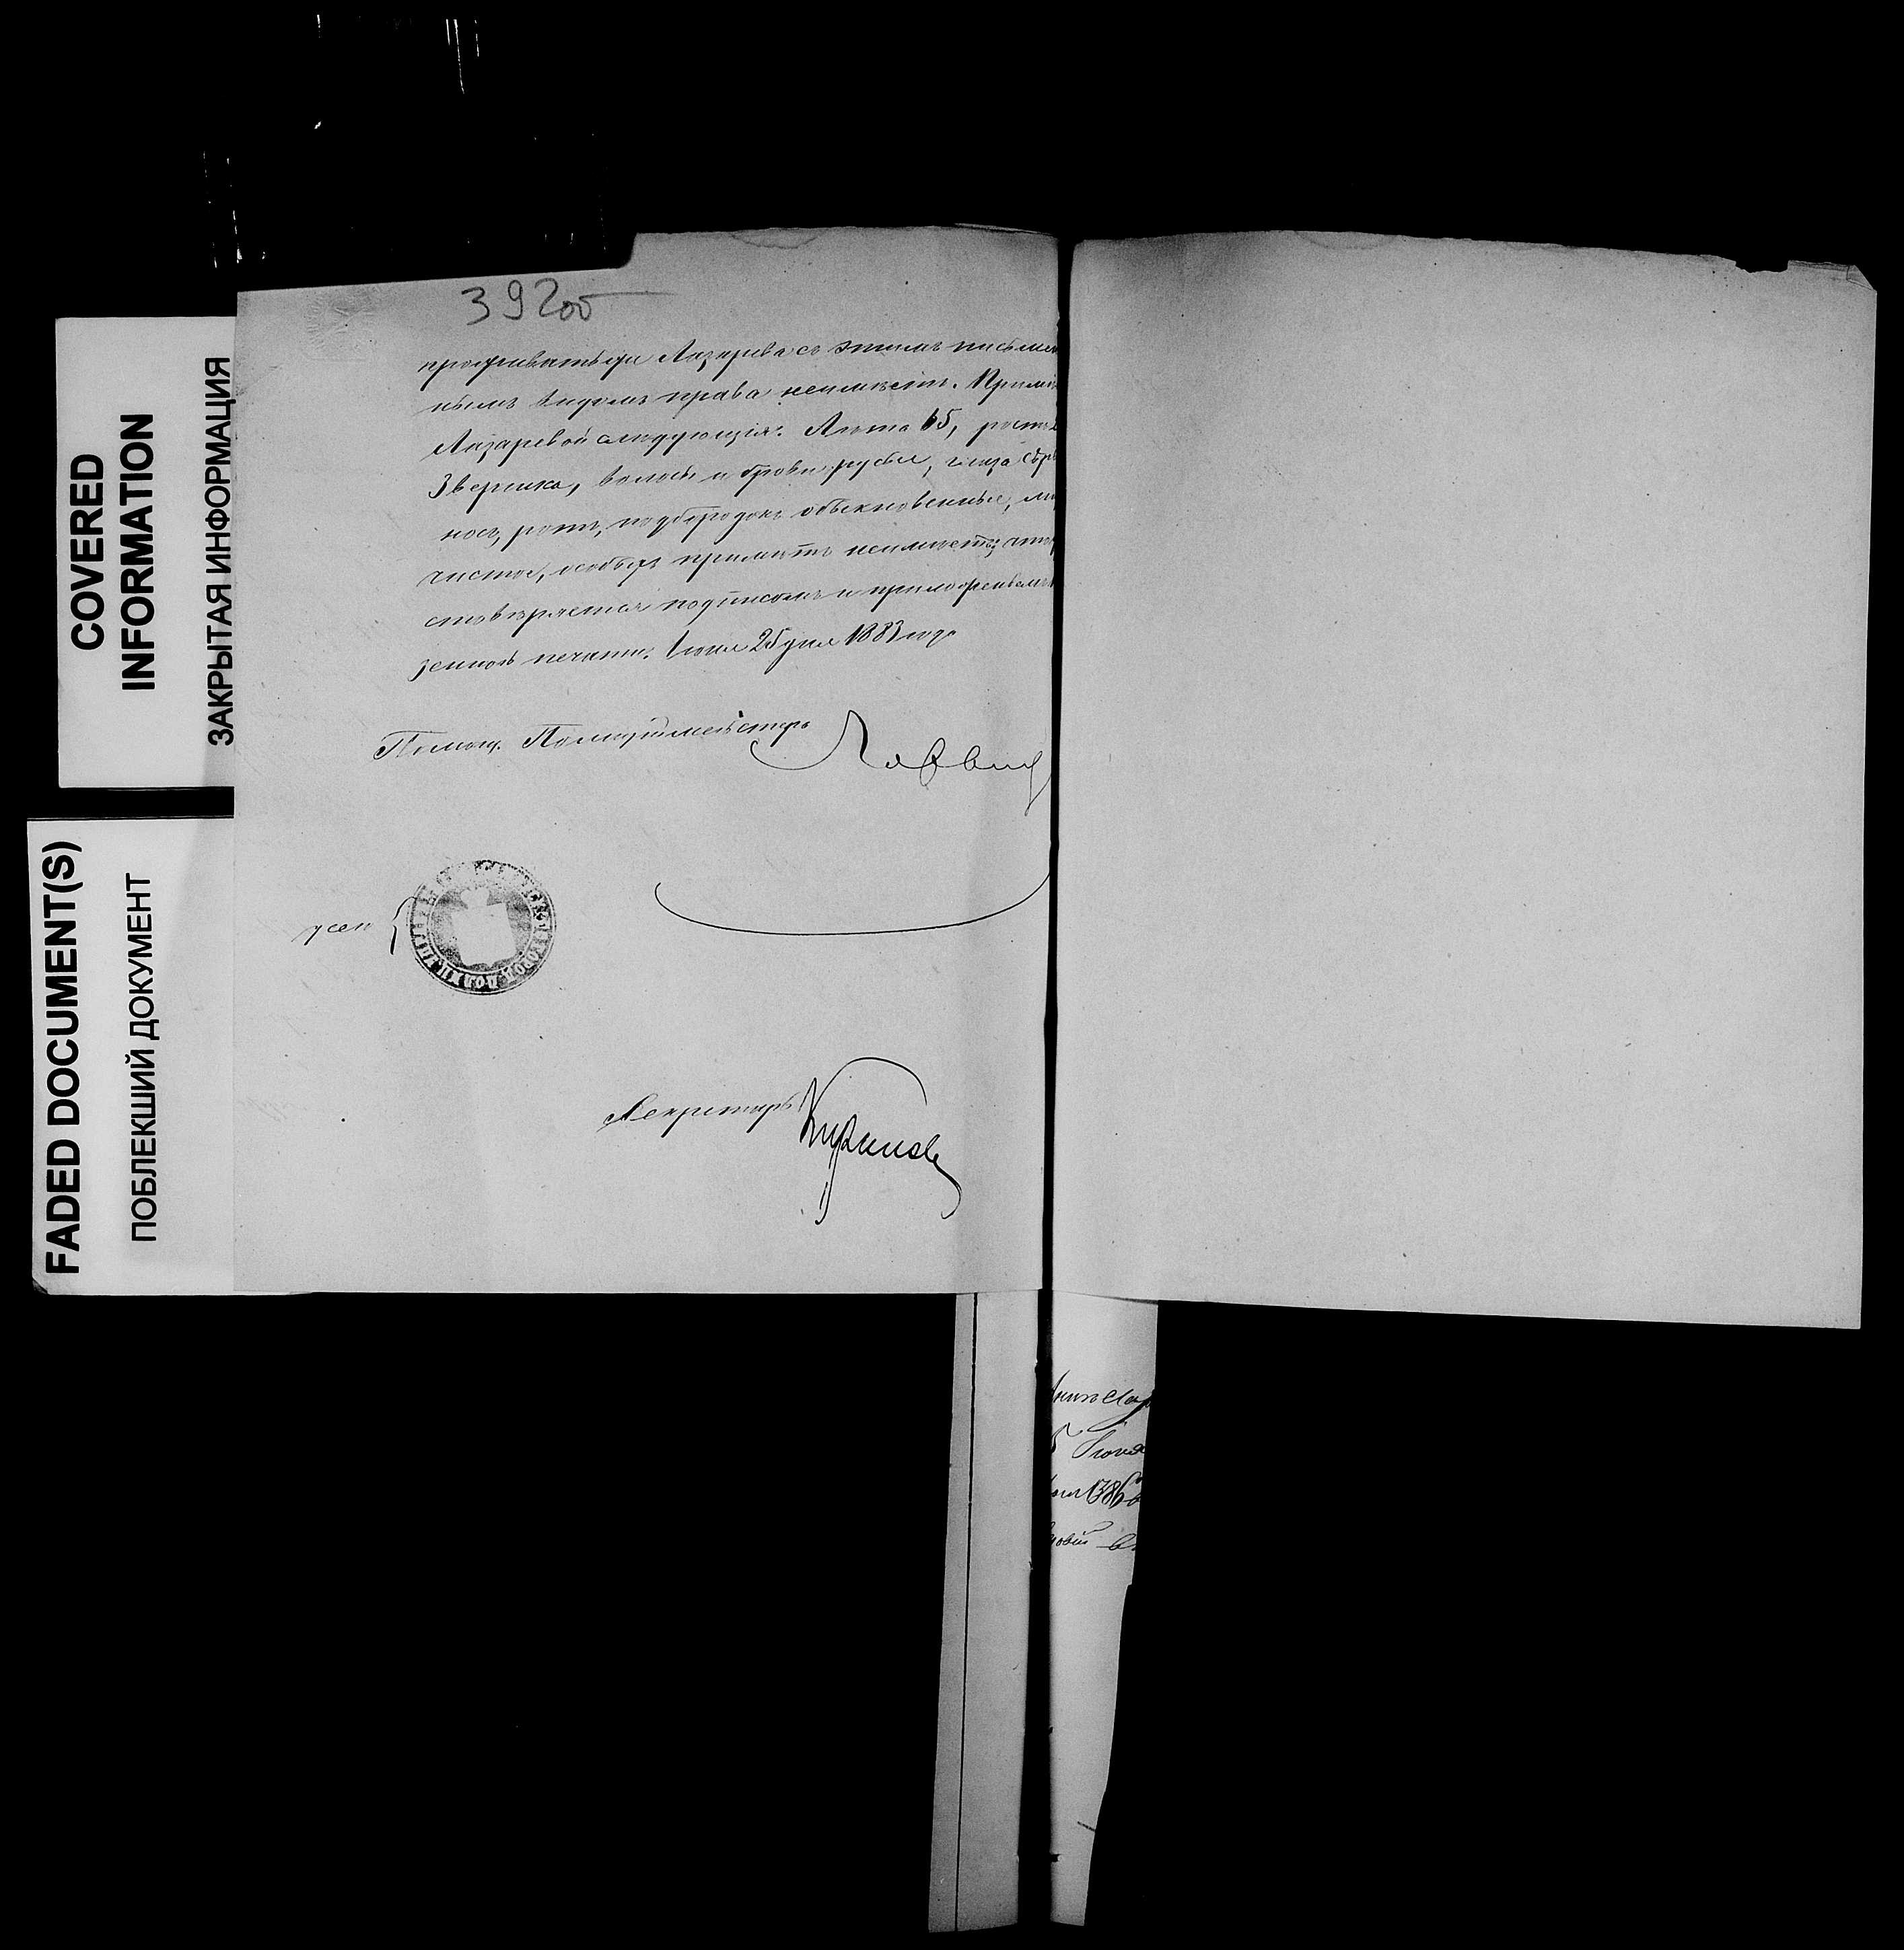 COVERED
INFORMATION
ЗАКРЫТАЯ ИНФОРМАЦИЯ
FADED DOCUMENT(S)
ПОБЛЕКШИЙ ДОКУМЕНТ
392об
Лазарева съ этимъ письмен
нымъ видомъ права неимѣетъ. Примѣ
Лазаревой слѣдующія: Лѣта 65, ростъ 2
3 вершка, волосы и брови русые, глаза сѣр
носъ, ротъ, подбородокъ обыкновенные, ли
чистое, особыхъ примѣтъ неимѣетъ, что
подписомъ и приложеніемъ
печати. Іюня 25 дня 1883 года
Помощ. Полицiймейстера
Секретарь
1886